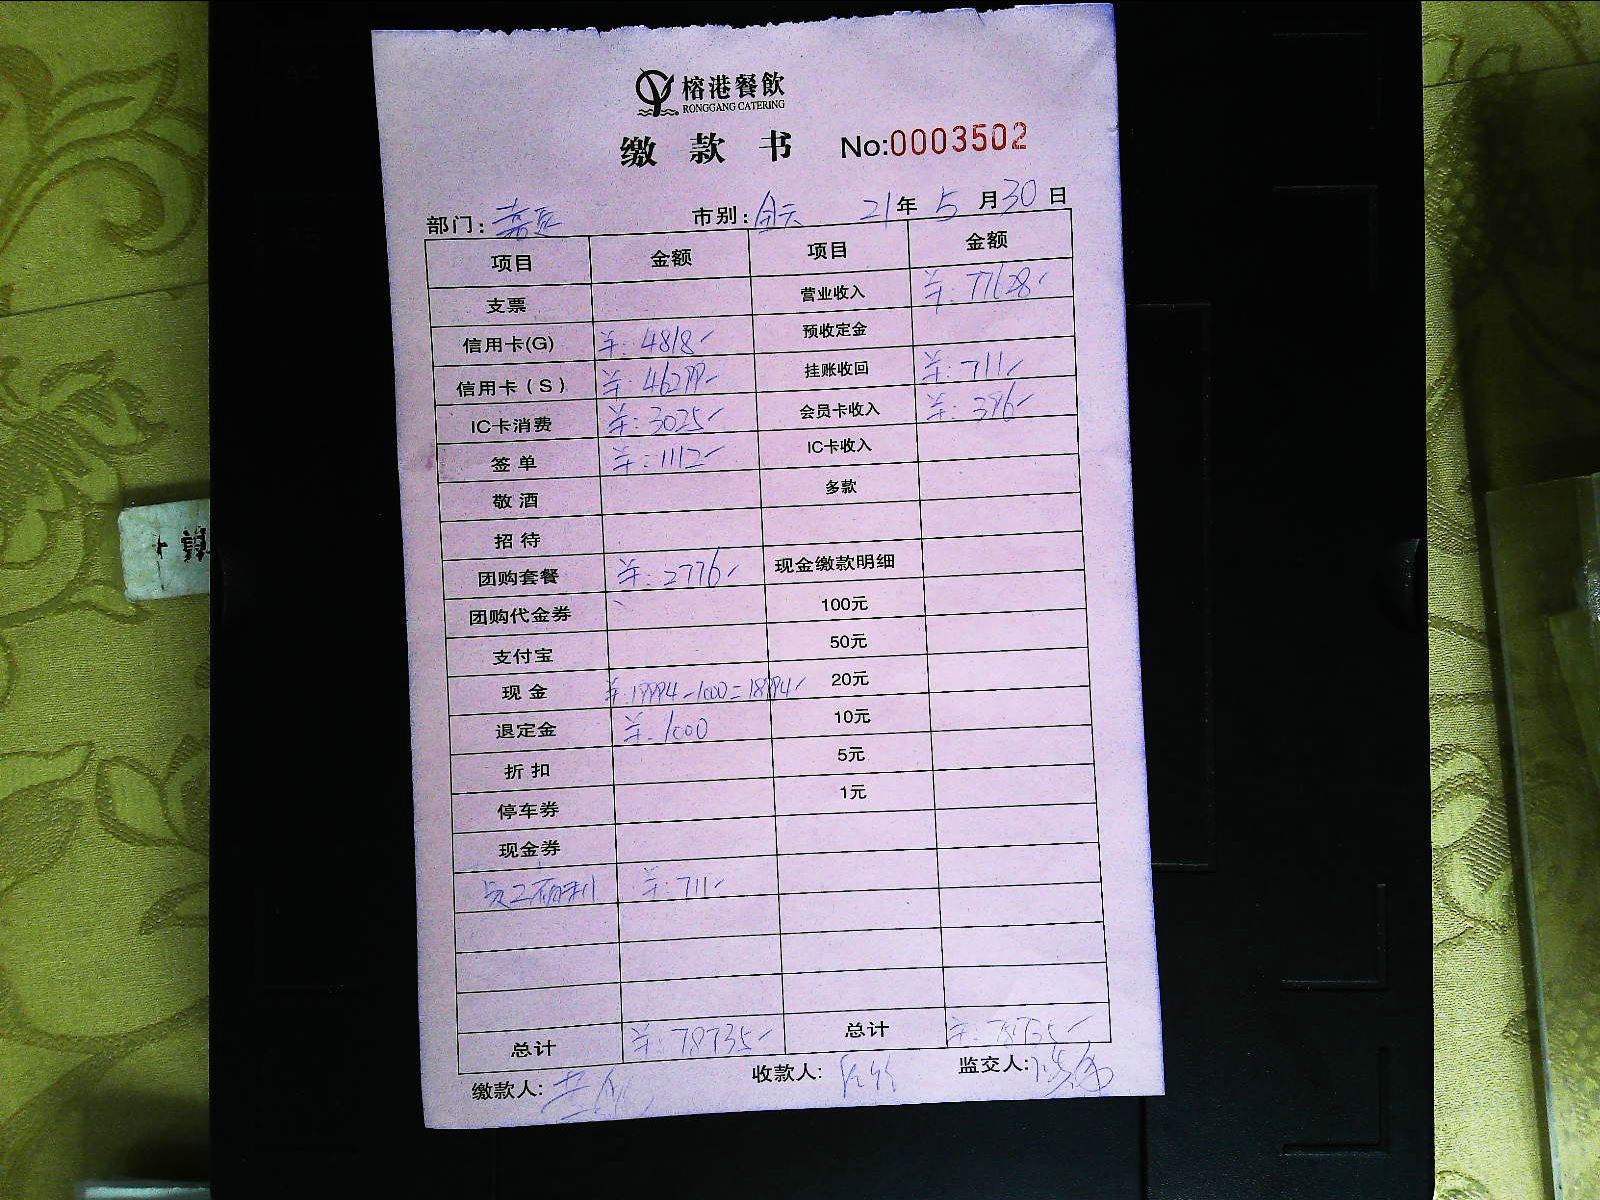 榕港餐飲
RONGGANG CATERING
缴款书 No:0003502
部门: 市别:全天 21年5月30日
项目 金额 项目 金额
支票 营业收入 羊:77628-
信用卡(G) 羊:4818- 预收定金
信用卡(S) 羊:46299- 挂账收回 羊:711-
IC卡消费 羊:3025- 会员卡收入 羊:396-
签单 羊:1112- IC卡收入
敬酒 多款
招待
团购套餐 羊:2776- 现金缴款明细
团购代金券 100元
支付宝 50元
现金 羊:19994-1000=18994- 20元
退定金 羊:1000 10元
折扣 5元
停车券 1元
现金券
员工福利 羊:711-
总计 羊:78735- 总计 羊:78735-
缴款人: 收款人: 监交人: